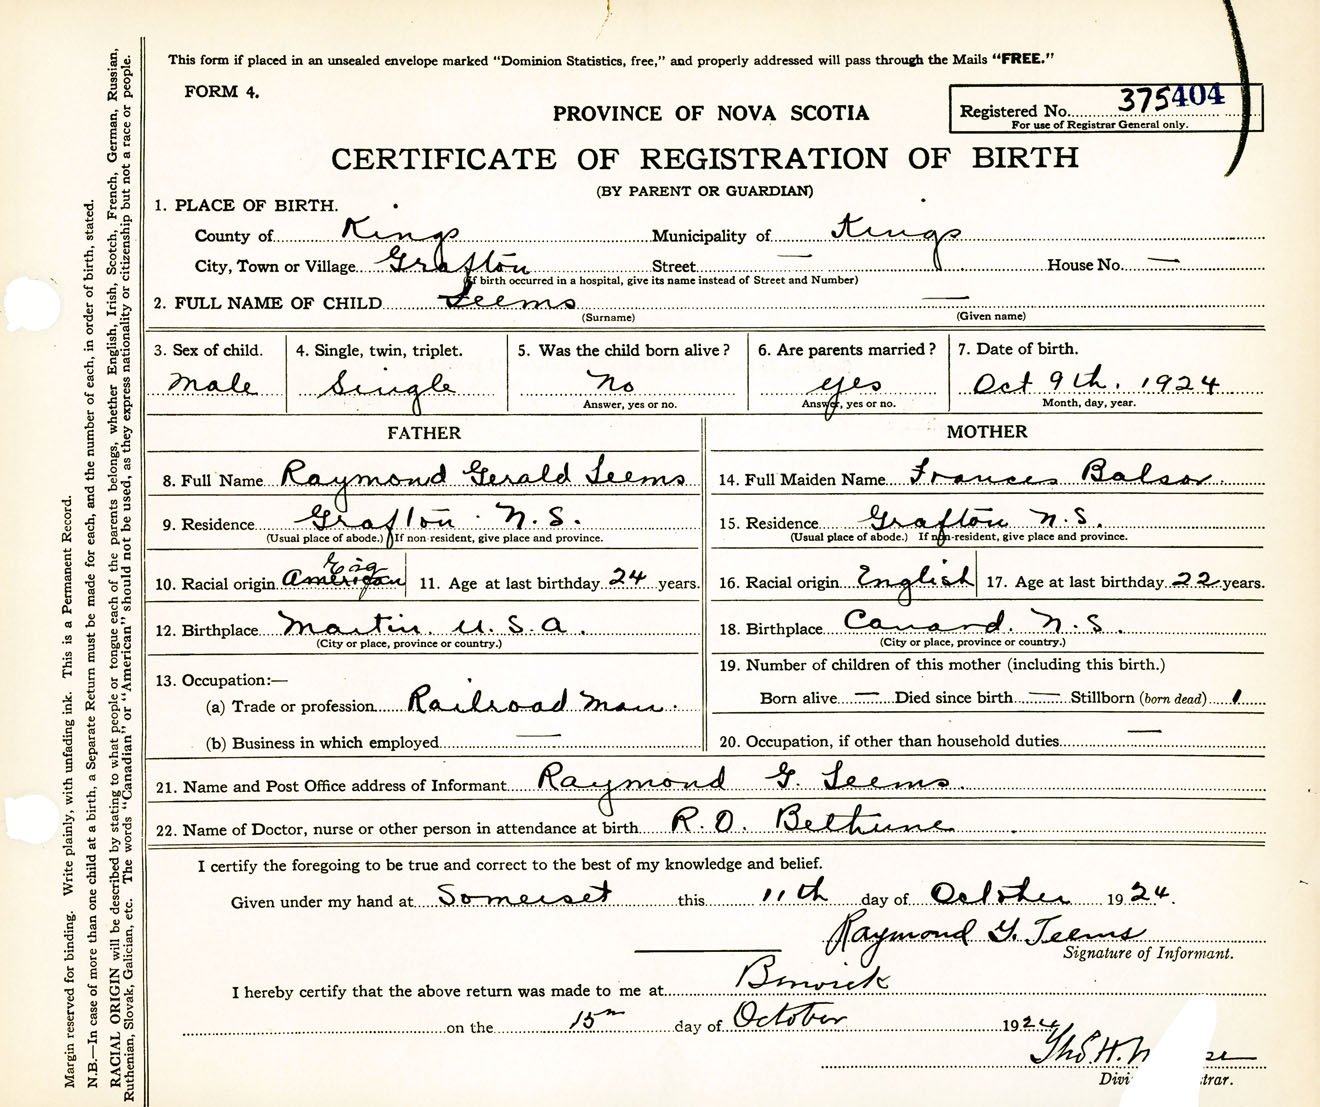 This form if placed in an unsealed envelope marked "Dominion Statistics, free," and properly addressed will pass through the Mails "FREE."
FORM 4.
PROVINCE OF NOVA SCOTIA
Registered No. 375404
For use of Registrar General only.
CERTIFICATE OF REGISTRATION OF BIRTH
(BY PARENT OR GUARDIAN)
1. PLACE OF BIRTH.
County of Kings Municipality of Kings
City, Town or Village Grafton Street — House No. —
(If birth occurred in a hospital, give its name instead of Street and Number)
2. FULL NAME OF CHILD Teems —
(Surname) (Given name)
3. Sex of child. 4. Single, twin, triplet. 5. Was the child born alive? 6. Are parents married? 7. Date of birth.
Male Single No yes Oct 9th. 1924
Answer, yes or no. Answer, yes or no. Month, day, year.
FATHER MOTHER
8. Full Name Raymond Gerald Teems 14. Full Maiden Name Frances Balsor.
9. Residence Grafton. N.S. 15. Residence Grafton N.S.
(Usual place of abode.) If non-resident, give place and province. (Usual place of abode.) If non-resident, give place and province.
Eng
10. Racial origin American 11. Age at last birthday 24 years. 16. Racial origin English 17. Age at last birthday 22 years.
12. Birthplace Martin. U.S.A. 18. Birthplace Canard. N.S.
(City or place, province or country.) (City or place, province or country.)
19. Number of children of this mother (including this birth.)
13. Occupation:—
(a) Trade or profession Railroad Man. Born alive — Died since birth — Stillborn (born dead) 1
(b) Business in which employed — 20. Occupation, if other than household duties —
21. Name and Post Office address of Informant Raymond G. Teems.
22. Name of Doctor, nurse or other person in attendance at birth R. O. Bethune
I certify the foregoing to be true and correct to the best of my knowledge and belief.
Given under my hand at Somerset this 11th day of October 1924.
Raymond G. Teems
Signature of Informant.
I hereby certify that the above return was made to me at Berwick
on the 15th day of October 1924
Tho. H.
Divi trar.
Margin reserved for binding. Write plainly, with unfading ink. This is a Permanent Record.
N.B.—In case of more than one child at a birth, a Separate Return must be made for each, and the number of each, in order of birth, stated.
RACIAL ORIGIN will be described by stating to what people or tongue each of the parents belongs, whether English, Irish, Scotch, French, German, Russian,
Ruthenian, Slovak, Galician, etc. The words "Canadian" or "American" should not be used, as they express nationality or citizenship but not a race or people.